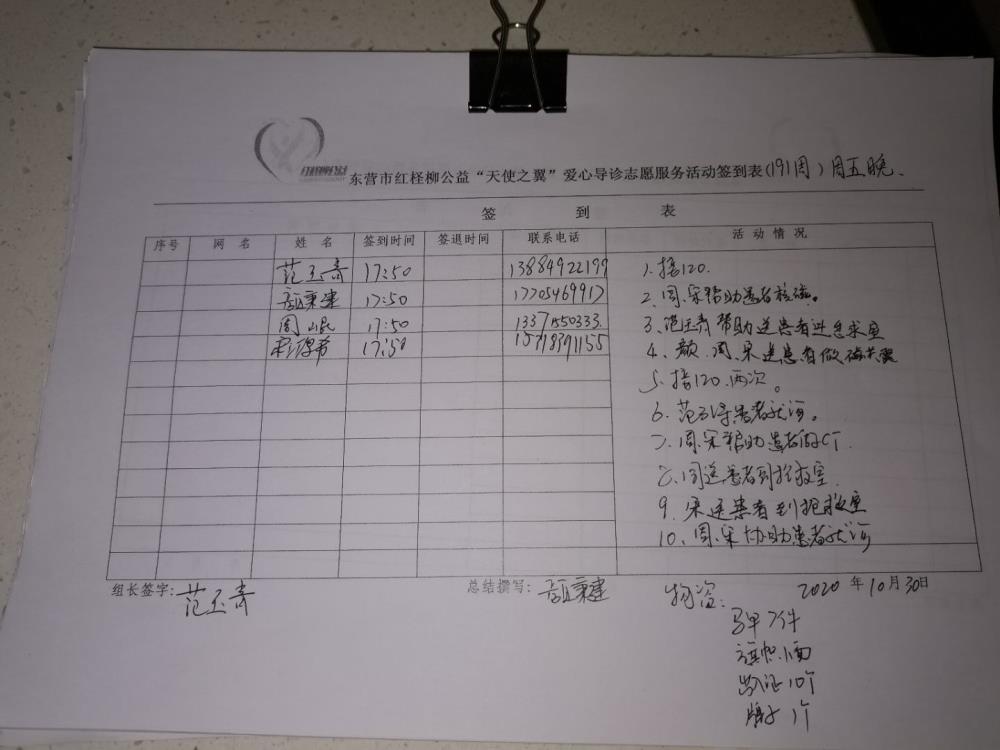 东营市红柽柳公益“天使之翼”爱心导诊志愿服务活动签到表(191周)周五晚.
签 到 表
序号 网 名 姓 名 签到时间 签退时间 联系电话 活 动 情 况
范玉青 17:50 13884922199 1.接120.
颜秉建 17:50 17705469917 2.周.宋帮助患者核磁。
周岷 17:50 13371550333. 3、范玉青帮助送患者进急求室
17:50 15718391155 4、颜.周.宋送患者做磁共震
5、接120.两次。
6、范引导患者就诊。
7、周.宋帮助患者做CT.
8、周送患者到抢救室.
9、宋送患者到抢救室
10、周.宋协助患者就诊
组长签字:范玉青 总结撰写:颜秉建 物资: 2020 年 10 月 30 日
马甲 7件
旗帜.1面
出入证 10个
牌子 1个